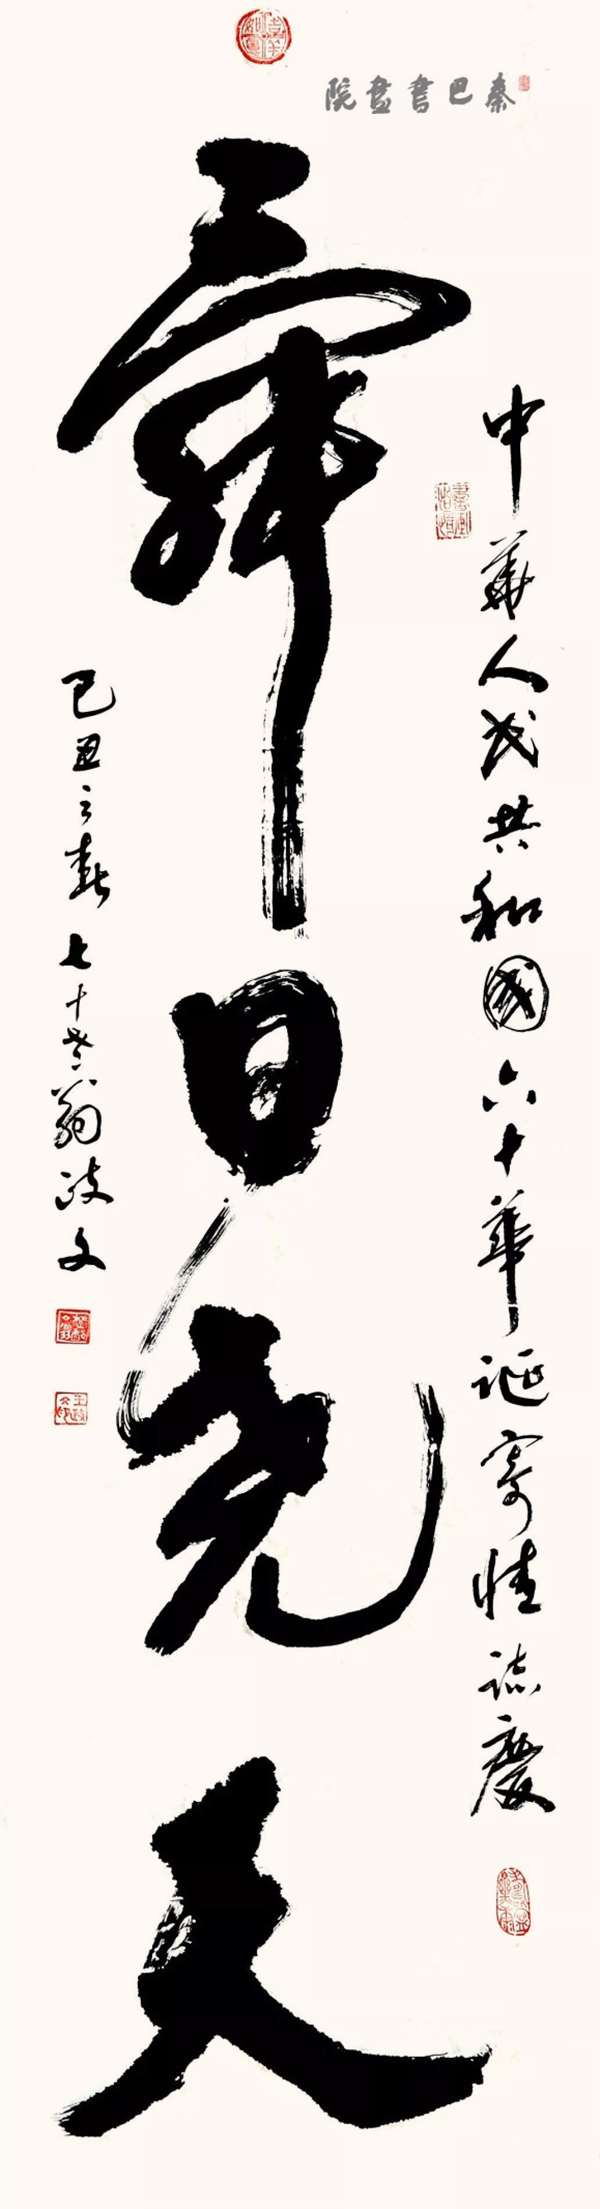 秦巴書畫院
中華人民共和國六十華誕寄情誌慶
舜日尧天
己丑之春七十老翁政文